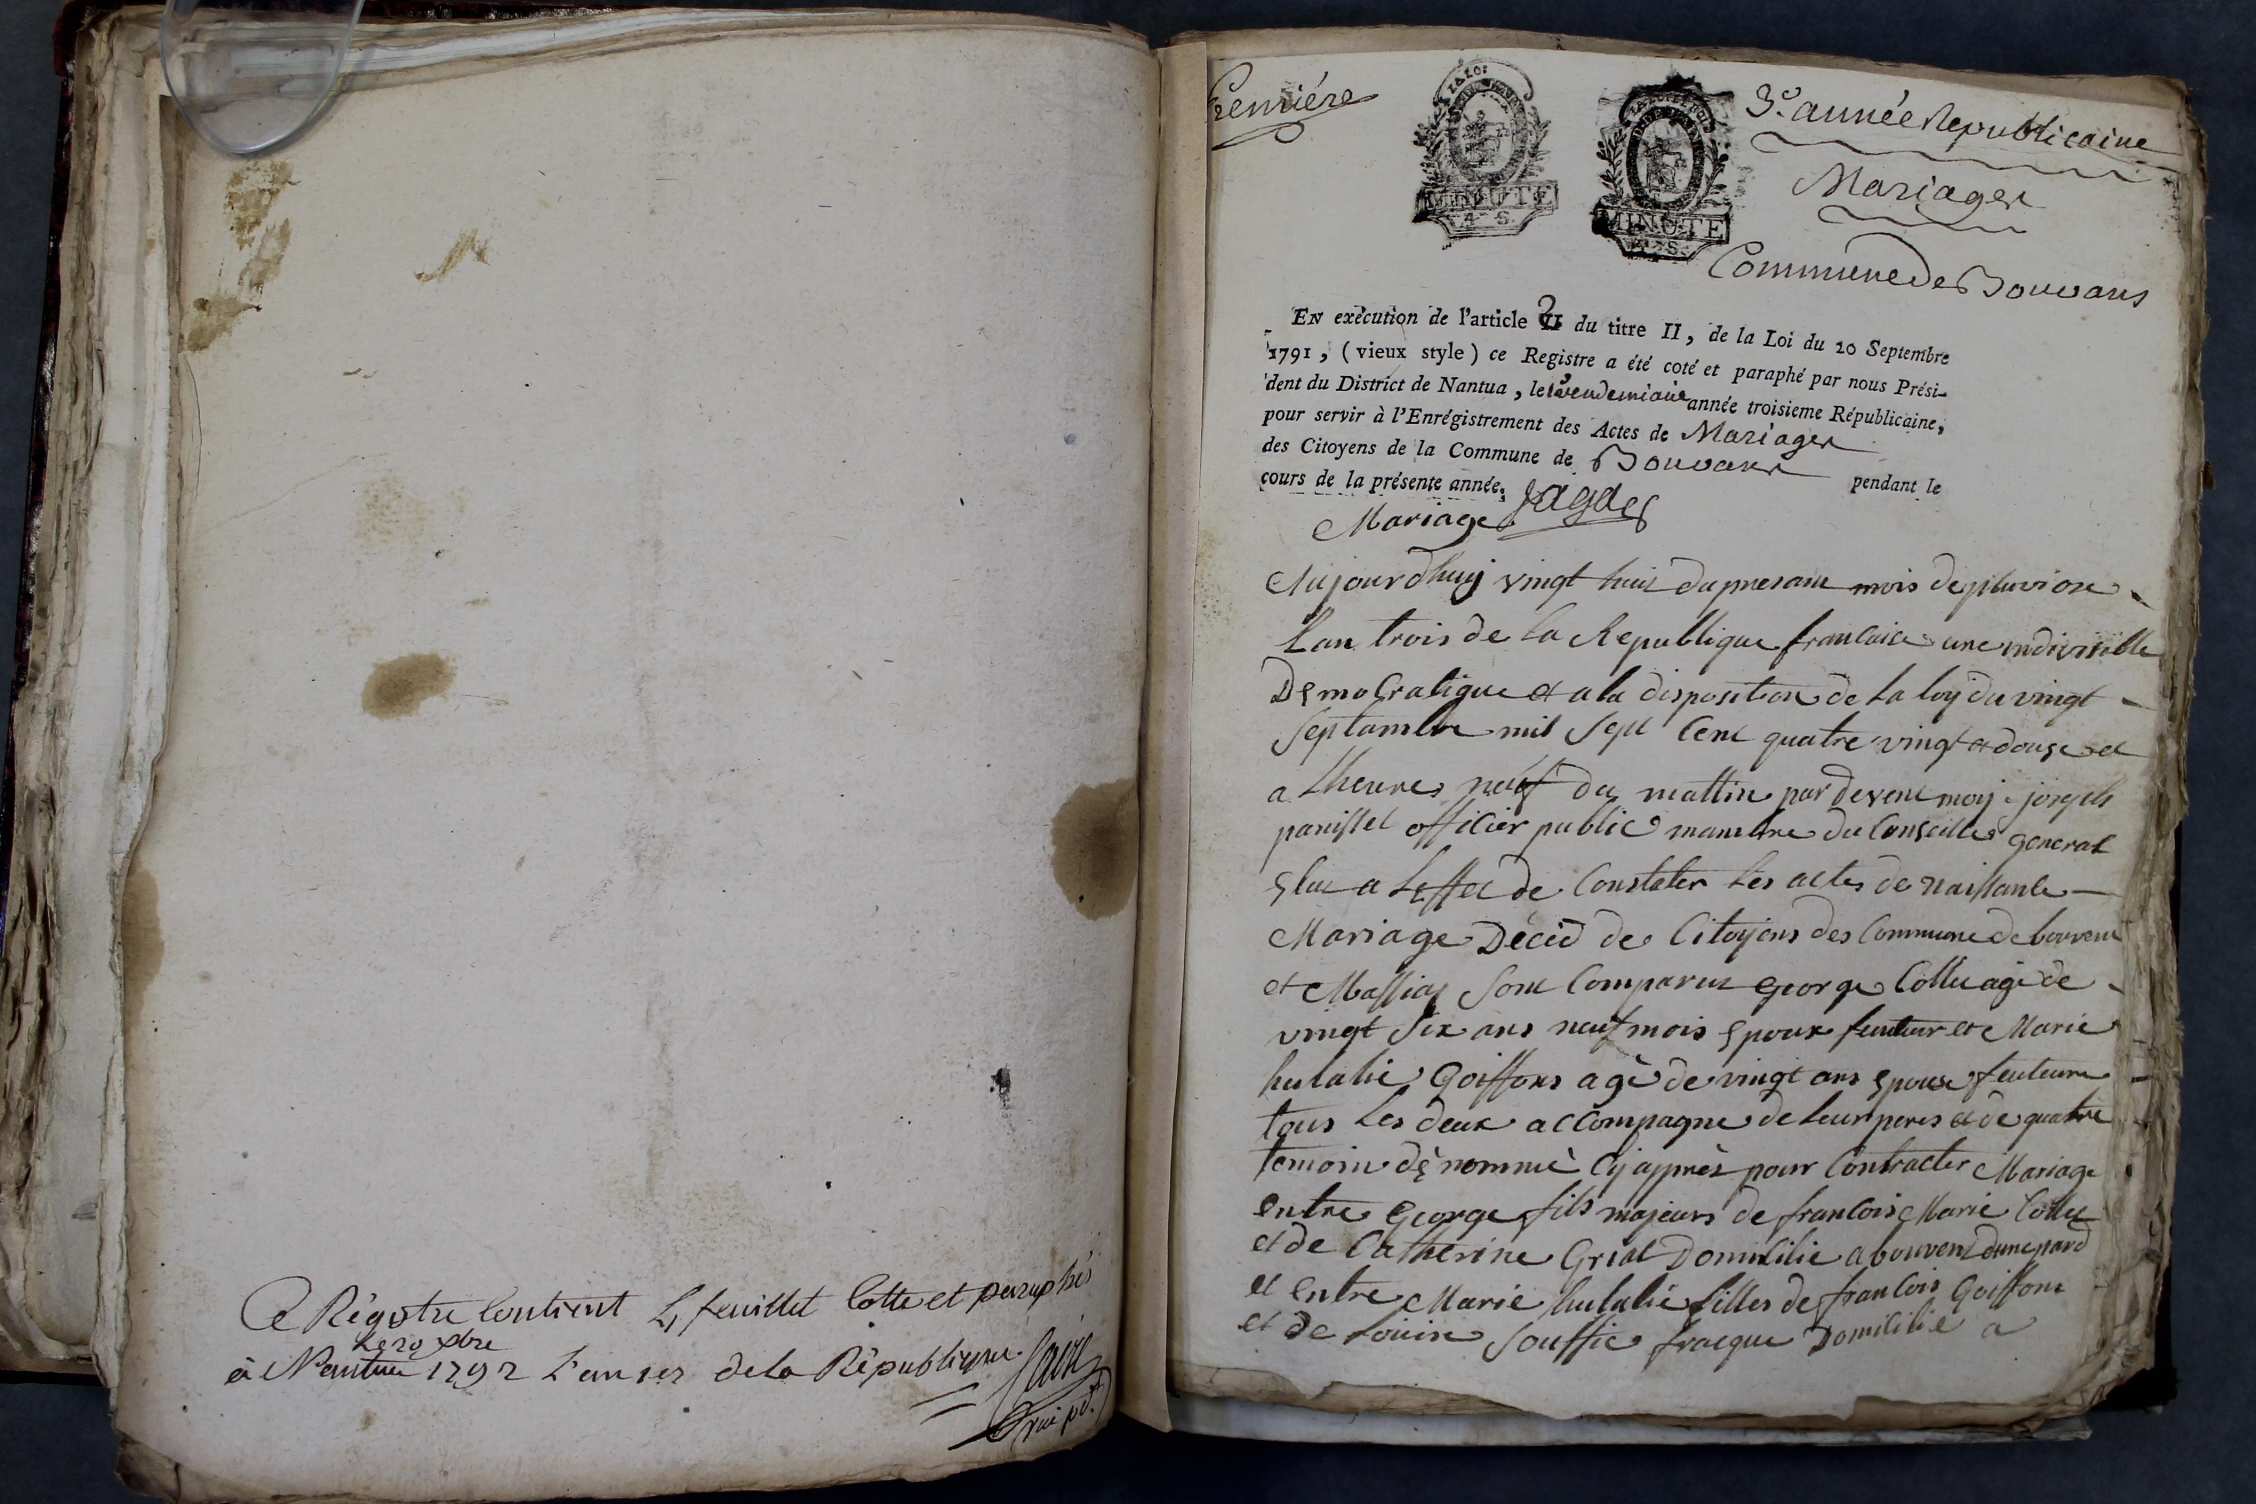 Ce Régistre Contient 4 feuillet Cotté et paraphés
à Nantua le 29 xbre 1792 L'an 1er de la République
Première
3e. année Republicaine
Mariages
Commune de Bouvans
LA LOI
MINUTE
4. S.
MINUTE
4. S.
EN exécution de l'article 2 du titre II, de la Loi du 20 Septembre
1791, (vieux style) ce Registre a été coté et paraphé par nous Prési-
dent du District de Nantua, le vendemiaire année troisieme Républicaine,
pour servir à l'Enrégistrement des Actes de Mariages
des Citoyens de la Commune de Bouvans pendant le
cours de la présente année.
Mariage
Aujourdhuy vingt huit du presant mois de pluviose
Lan trois de la Republique francaise une indivisible
Democratique et a la disposition de la loy du vingt
Septambre mil Sept Cent quatre vingt et douze et
a Lheure neuf du mattin par devent moy joseph
panisset officier public manbre du Conseille general
Elut a Leffet de Constater Les actes de naissance
Mariage Décéd de Citoyens des Commune de bouvent
et Massiat Sont Comparut george Collet agé de
vingt Six ans neuf mois Epoux feuteur et Marie
hulalie Goiffons agé de vingt ans Epouse feuteure
tous Les deux acCompagne de Leur peres et de quatre
temoin dénommé Cy apprés pour Contracter Mariage
Entre George fils majeurs de francois Marie Collet
et de Catherine Griat Domicilié a bouvent dune pard
et Entre Marie hulalie filles de francois Goiffons
et de Souffie fracque Domicilié a